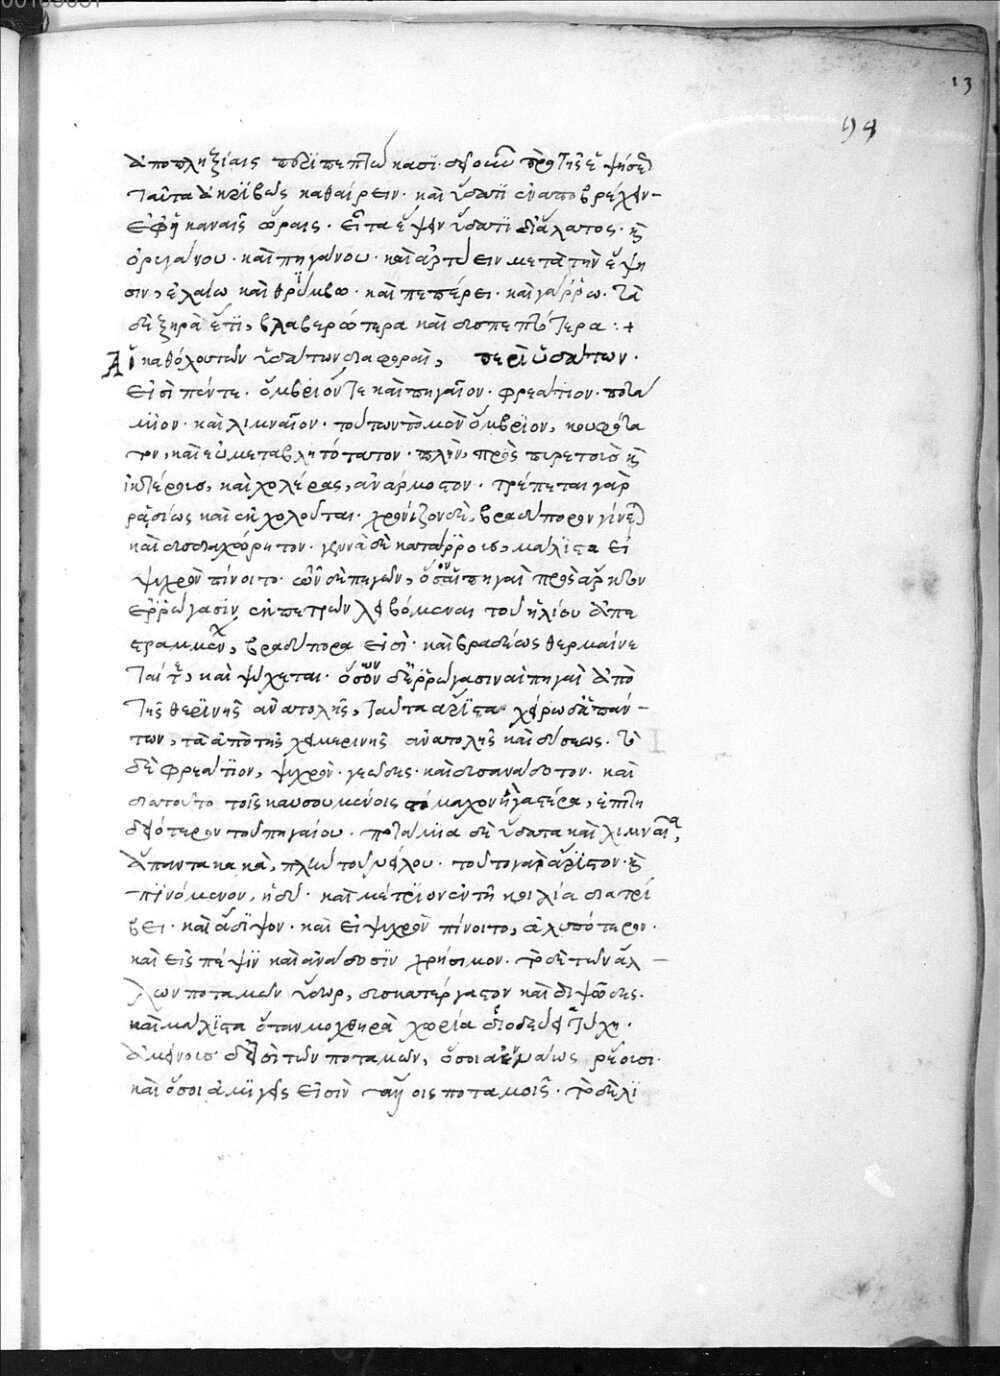 13
94
ἀποπληξίαις περιπεπτώκασι· δέον οὖν πρὸ τῆς ἑψήσεως
ταῦτα ἀκριβῶς καθαίρειν· καὶ ὕδατι ἐναποβρέχειν
ἐφ' ἱκαναῖς ὥραις· εἶτα ἕψειν ὕδατι δι' ἅλατος· καὶ
ὀριγάνου· καὶ πηγάνου· καὶ ἀρτύειν μετὰ τὴν ἕψη
σιν, ἐλαίω καὶ θρύμβω· καὶ πεπέρει· καὶ γάρρω. τὰ
δὲ ξηρὰ ἔτι, βλαβερώτερα καὶ δυσπεπτότερα :+
Αἱ καθόλου τῶν ὑδάτων διαφοραὶ, περὶ ὑδάτων·
εἰσὶ πέντε· ὄμβριόν τε καὶ πηγαῖον· φρεάτιον· ποτά
μιον· καὶ λιμναῖον· τούτων τὸ μὲν ὄμβριον, κουφότα
τον, καὶ εὐμεταβλητότατον· πλὴν, πρὸς πυρετοὺς καὶ
ἰκτέρους, καὶ χολέρας, ἀνάρμοστον· τρέπεται γὰρ
ραδίως καὶ ἐκχολοῦται· χρονίζον δὲ, βραδύπορον γίνεται
καὶ δυσδιαχώρητον· γεννᾶ δὲ κατάρρους, μάλιστα εἰ
ψυχρὸν πίνοιτο· τῶν δὲ πηγῶν, ὅσαι πηγαὶ πρὸς ἄρκτον
ἐρρώγασιν ἐκ πετρῶν λειβόμεναι τοῦ ἡλίου ἀπε
στραμμέναι, βραδύπορα εἰσὶ· καὶ βραδέως θερμαίνε
ταί τε, καὶ ψύχεται· ὅσων δὲ ἐρρώγασιν αἱ πηγαὶ ἀπὸ
τῆς θερινῆς ἀνατολῆς, ταῦτα ἄριστα· χείρω δὲ πάν
των, τὰ ἀπὸ τῆς χειμερινῆς ἀνατολῆς καὶ δύσεως. τὸ
δὲ φρεάτιον, ψυχρὸν· γεῶδες· καὶ δυσανάδοτον· καὶ
διὰ τοῦτο τοῖς καυσουμένοις στόμαχον ἢ γαστέρα, ἐπιτη
δειότερον τοῦ πηγαίου· ποτάμια δὲ ὕδατα καὶ λιμναῖα,
ἅπαντα κακὰ, πλὴν τοῦ νείλου· τοῦτο γὰρ ἄριστον· καὶ
πινόμενον, ἡδὺ· καὶ μέτριον ἐν τῆ κοιλία διατρί
βει· καὶ ἄδιψον· καὶ εἰ ψυχρὸν πίνοιτο, ἀλυπότερον·
καὶ εἰς πέψιν καὶ ἀνάδοσιν χρήσιμον· τὸ δὲ τῶν ἄλ
λων ποταμῶν ὕδωρ, δυσκατέργαστον καὶ διψῶδες.
καὶ μάλιστα ὅταν μοχθηρὰ χωρία διοδεῦον τύχη·
ἀμείνους δὲ εἰσὶ τῶν ποταμῶν, ὅσοι ἀεννάως ῥέουσι·
καὶ ὅσοι ἀμιγεῖς εἰσὶν τοῖς ἄλλοις ποταμοῖς· τὸ δὲ λι